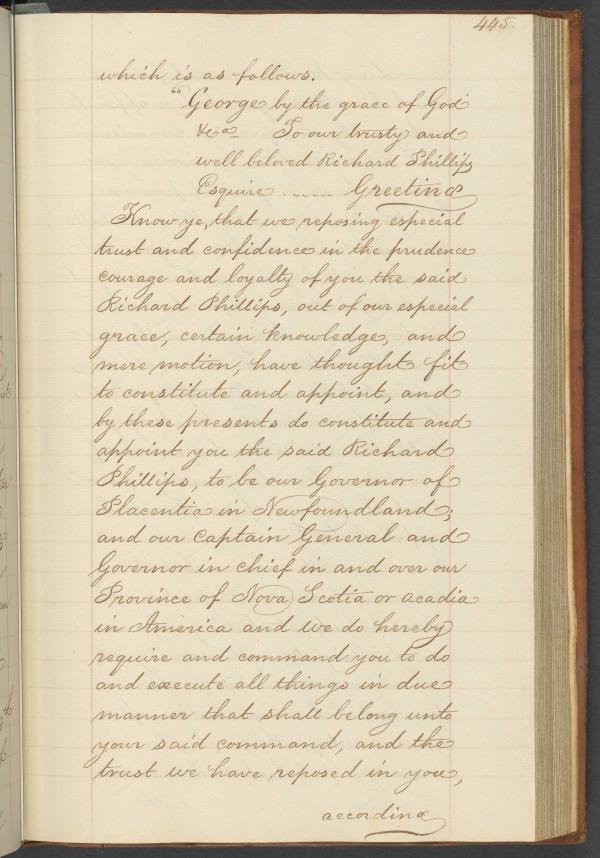 445.
which is as follows.
"George by the grace of God
&ca To our trusty and
well beloved Richard Phillips
Esquire ...... Greeting
Know ye, that we reposing especial
trust and confidence in the prudence
courage and loyalty of you the said
Richard Phillips, out of our especial
grace, certain knowledge, and
mere motion, have thought fit
to constitute and appoint, and
by these presents do constitute and
appoint you the said Richard
Phillips, to be our Governor of
Placentia in Newfoundland;
and our Captain General and
Governor in chief in and over our
Province of Nova Scotia or acadia
in America and we do hereby
require and command you to do
and execute all things in due
manner that shall belong unto
your said command, and the
trust we have reposed in you,
according